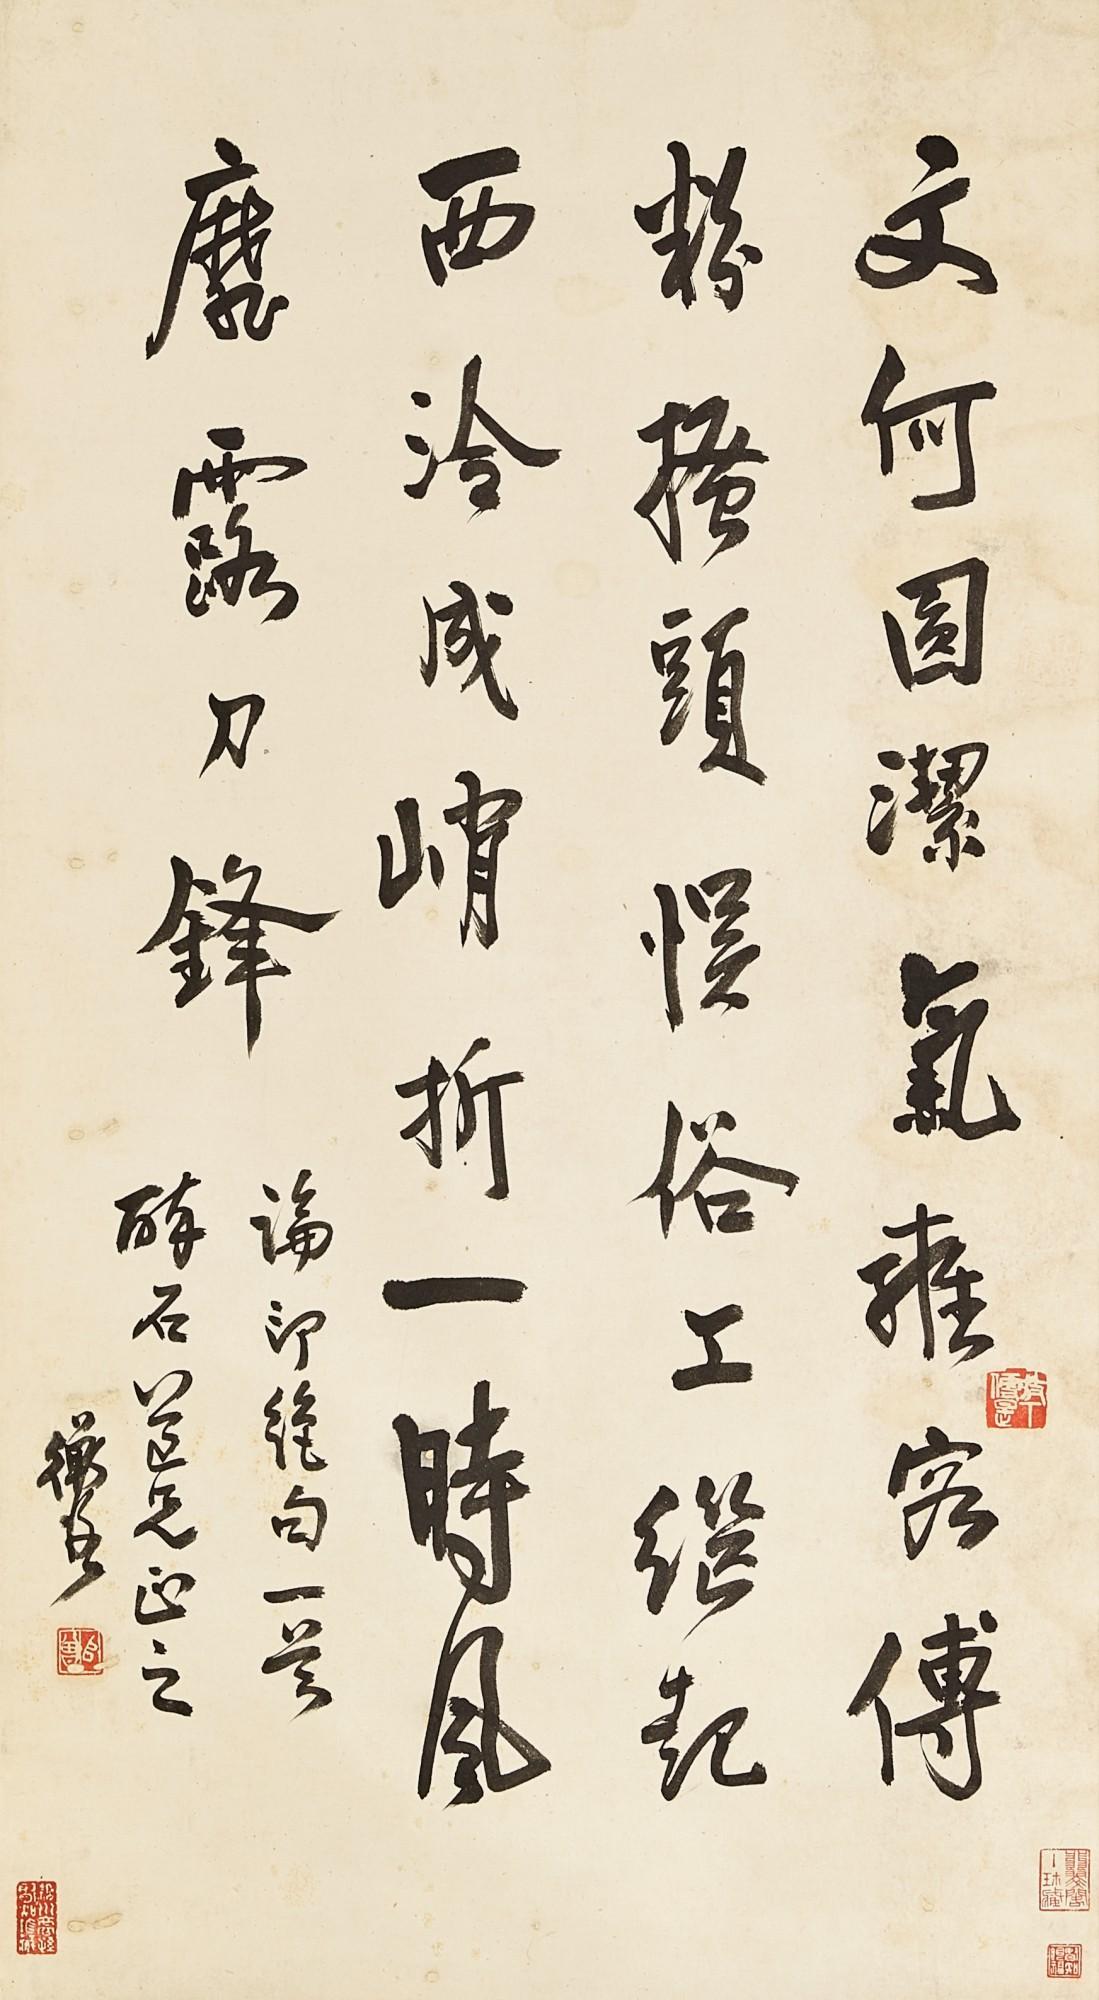 文何圓潔氣雍容傅
粉搔頭悮俗工縱起
西泠成峭折一時風
靡露刀鋒
論印絕句一首
醉石道兄正之